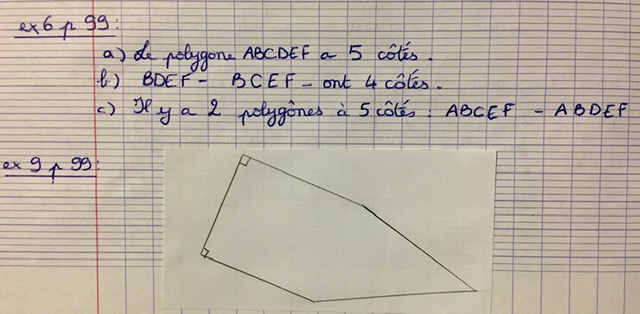 ex 6 p 99 :
a) Le polygone ABCDEF a 5 côtés.
b) BDEF - BCEF - ont 4 côtés.
c) Il y a 2 polygônes à 5 côtés : ABCEF - ABDEF
ex 9 p 99 :